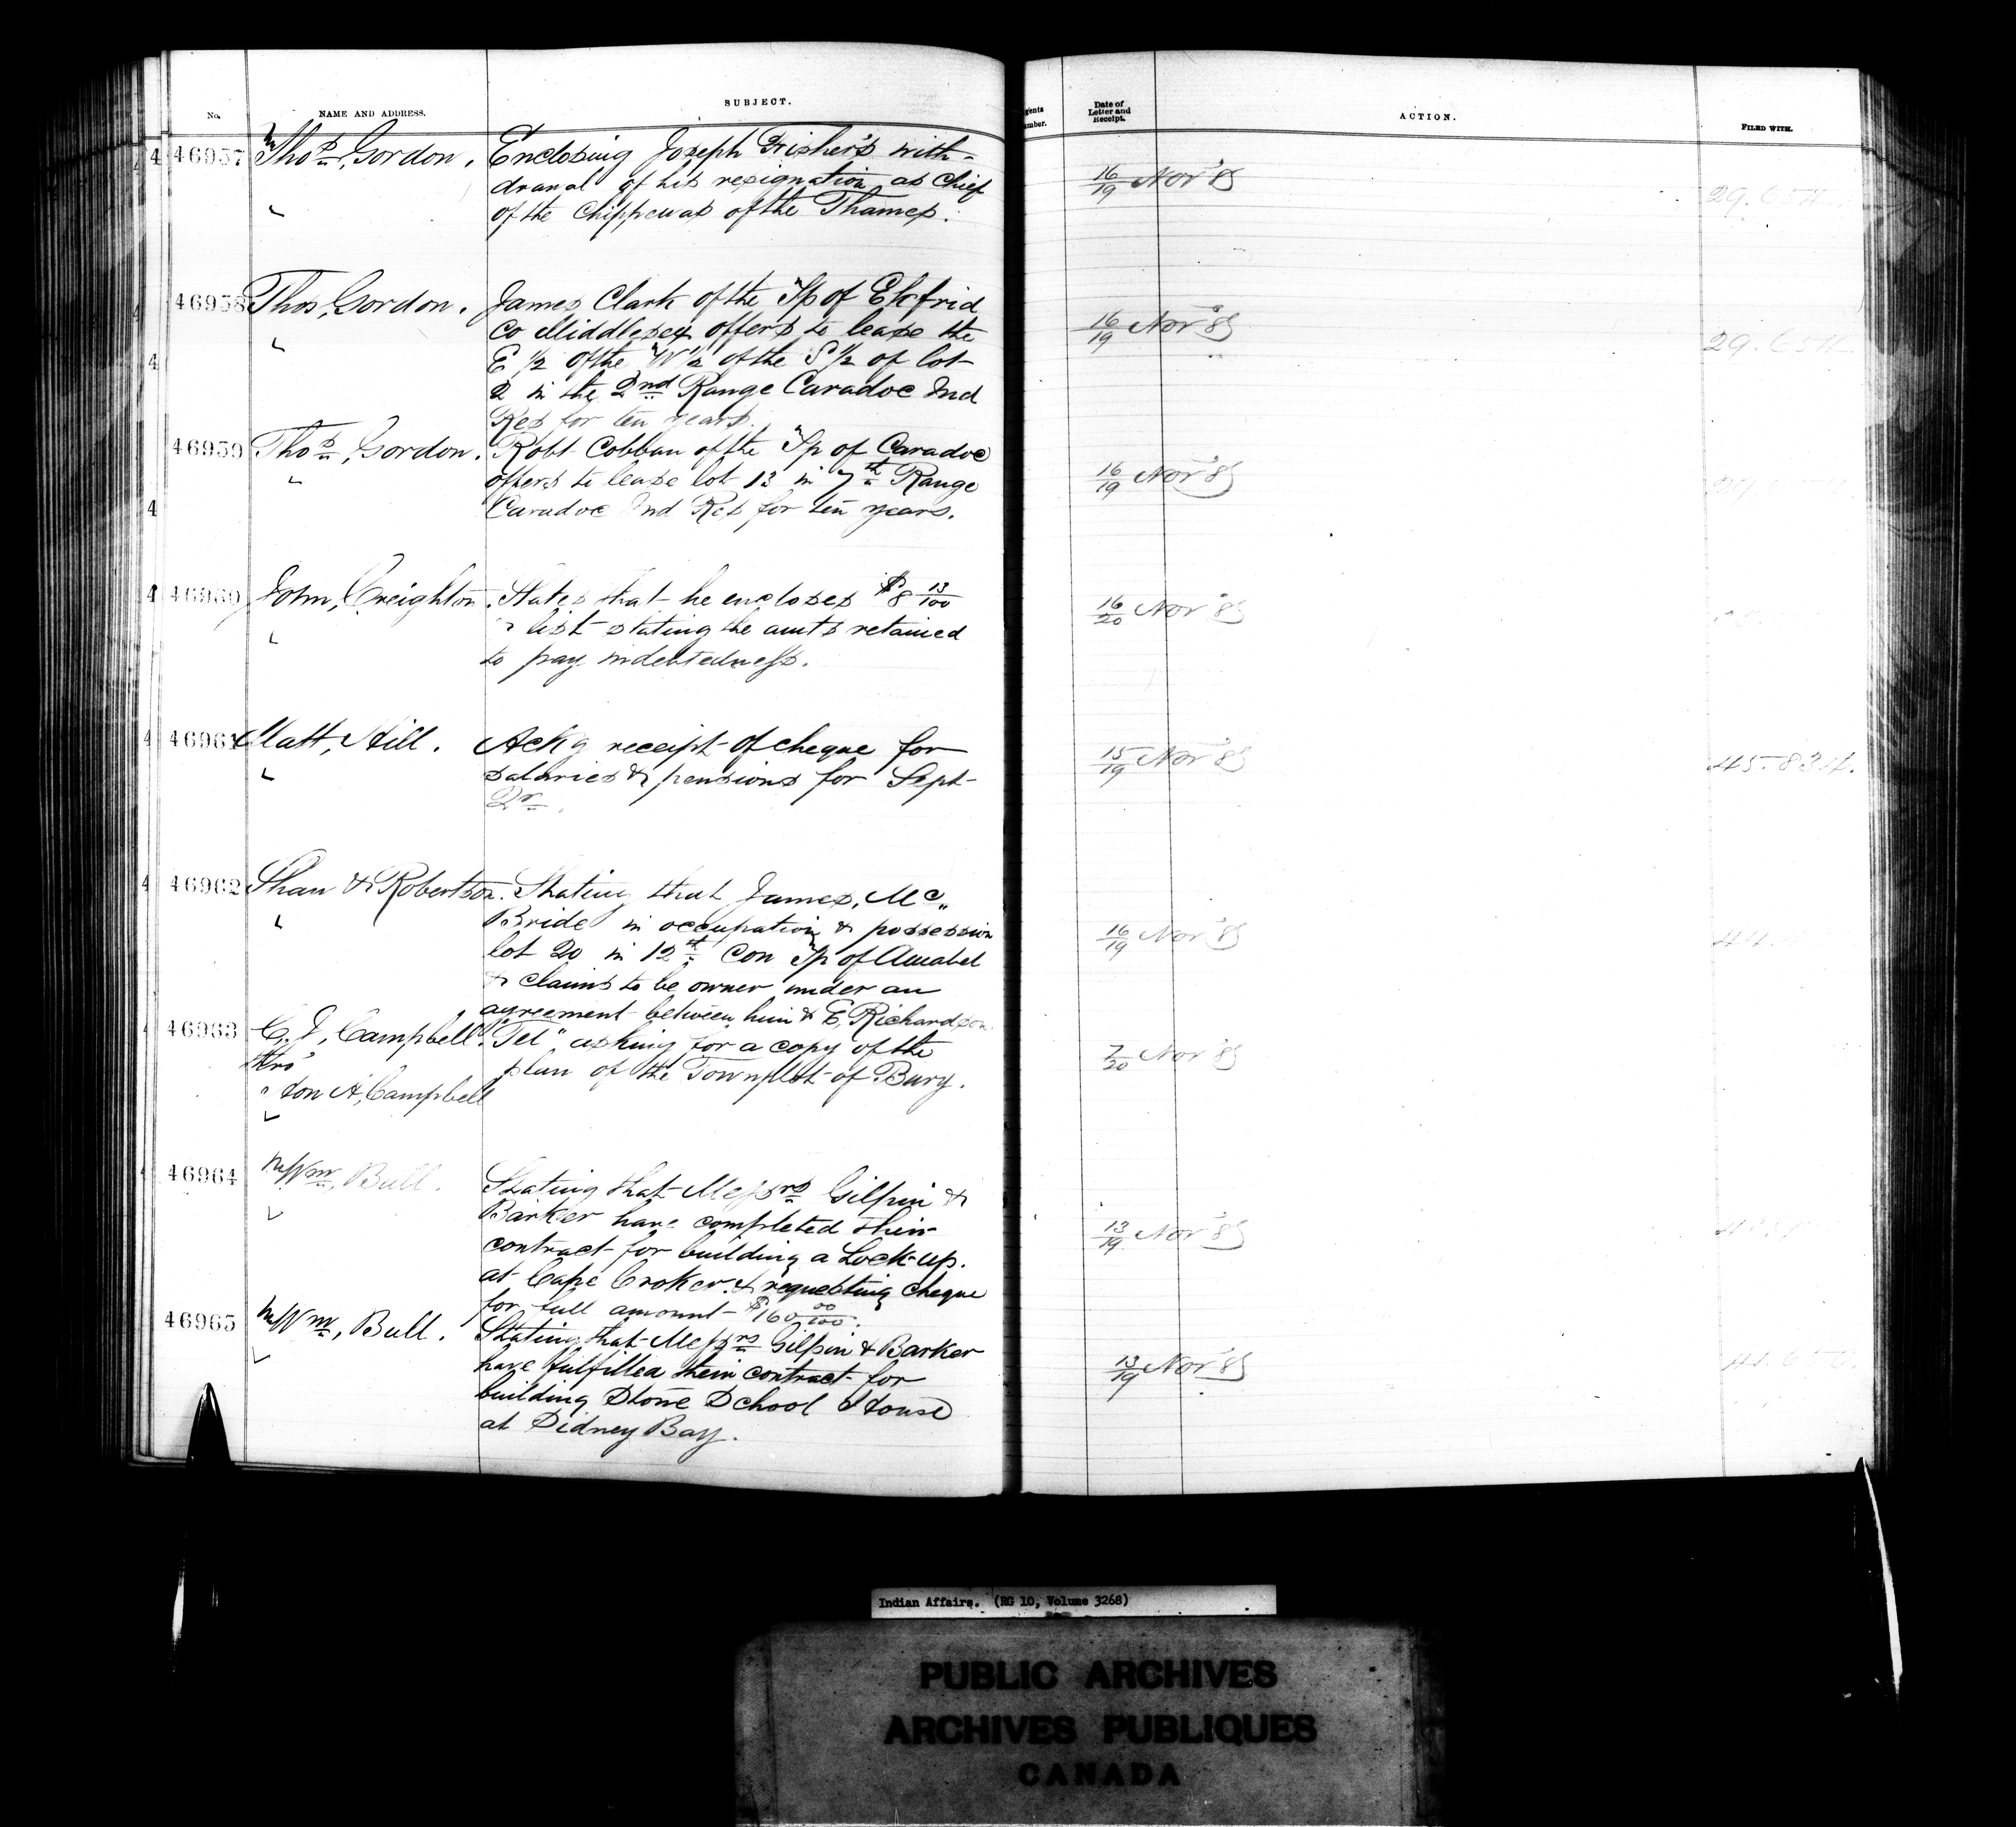 No. NAME AND ADDRESS. SUBJECT. Date of Letter and Receipt. ACTION. FILED WITH.
46957 Thos, Gordon. Enclosing Joseph Fisher's with-
drawal of his resignation as Chief
of the Chippewas of the Thames.
16/19 Nov '85 29.654.
46958 Thos, Gordon. James Clark of the Tp of Ekfrid
Co Middlesex offers to lease the
E 1/2 of the W 1/2 of the S 1/2 of lot
2 in the 2nd Range Caradoc Ind
Res for ten years.
16/19 Nov '85 29.654.
46959 Thos, Gordon. Robt Cobban of the Tp of Caradoc
offers to lease lot 13 in 7th Range
Caradoc Ind Res for ten years.
16/19 Nov '85
46960 John, Creighton. States that he encloses $8 13/100
& list stating the amts retained
to pay indebtedness.
16/20 Nov '85
46961 Matt, Hill. Ackg receipt of cheque for
salaries & pensions for Sept
Qr.
15/19 Nov '85 45.834.
46962 Shaw & Robertson. Stating that James, Mc
Bride in occupation & possession
lot 20 in 12th Con Tp of Amabel
& claims to be owner under an
agreement between him & E, Richardson
16/19 Nov '85
46963 C. J, Campbell. "Tel" asking for a copy of the
thro' plan of the Townplot of Bury.
Hon A, Campbell
7/20 Nov '85
46964 Wm, Bull. Stating that Messrs Gilpin &
Barker have completed their
contract for building a Lock-up.
at Cape Croker. & requesting cheque
for full amount $160 00/100.
13/19 Nov '85
46965 Wm, Bull. Stating that Messrs Gilpin & Barker
have fulfilled their contract for
building Stone School House
at Sidney Bay.
13/19 Nov '85
Indian Affairs. (RG 10, Volume 3268)
PUBLIC ARCHIVES
ARCHIVES PUBLIQUES
CANADA